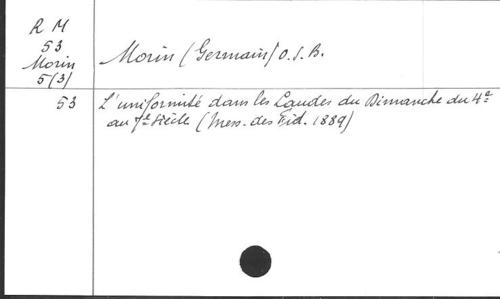 R M
53
Morin
5(3)
Morin (Germain) O. S. B.
53
L'uniformité dans les Laudes du Dimanche du 4e
au 7e siècle (Mess. des Fid. 1889)